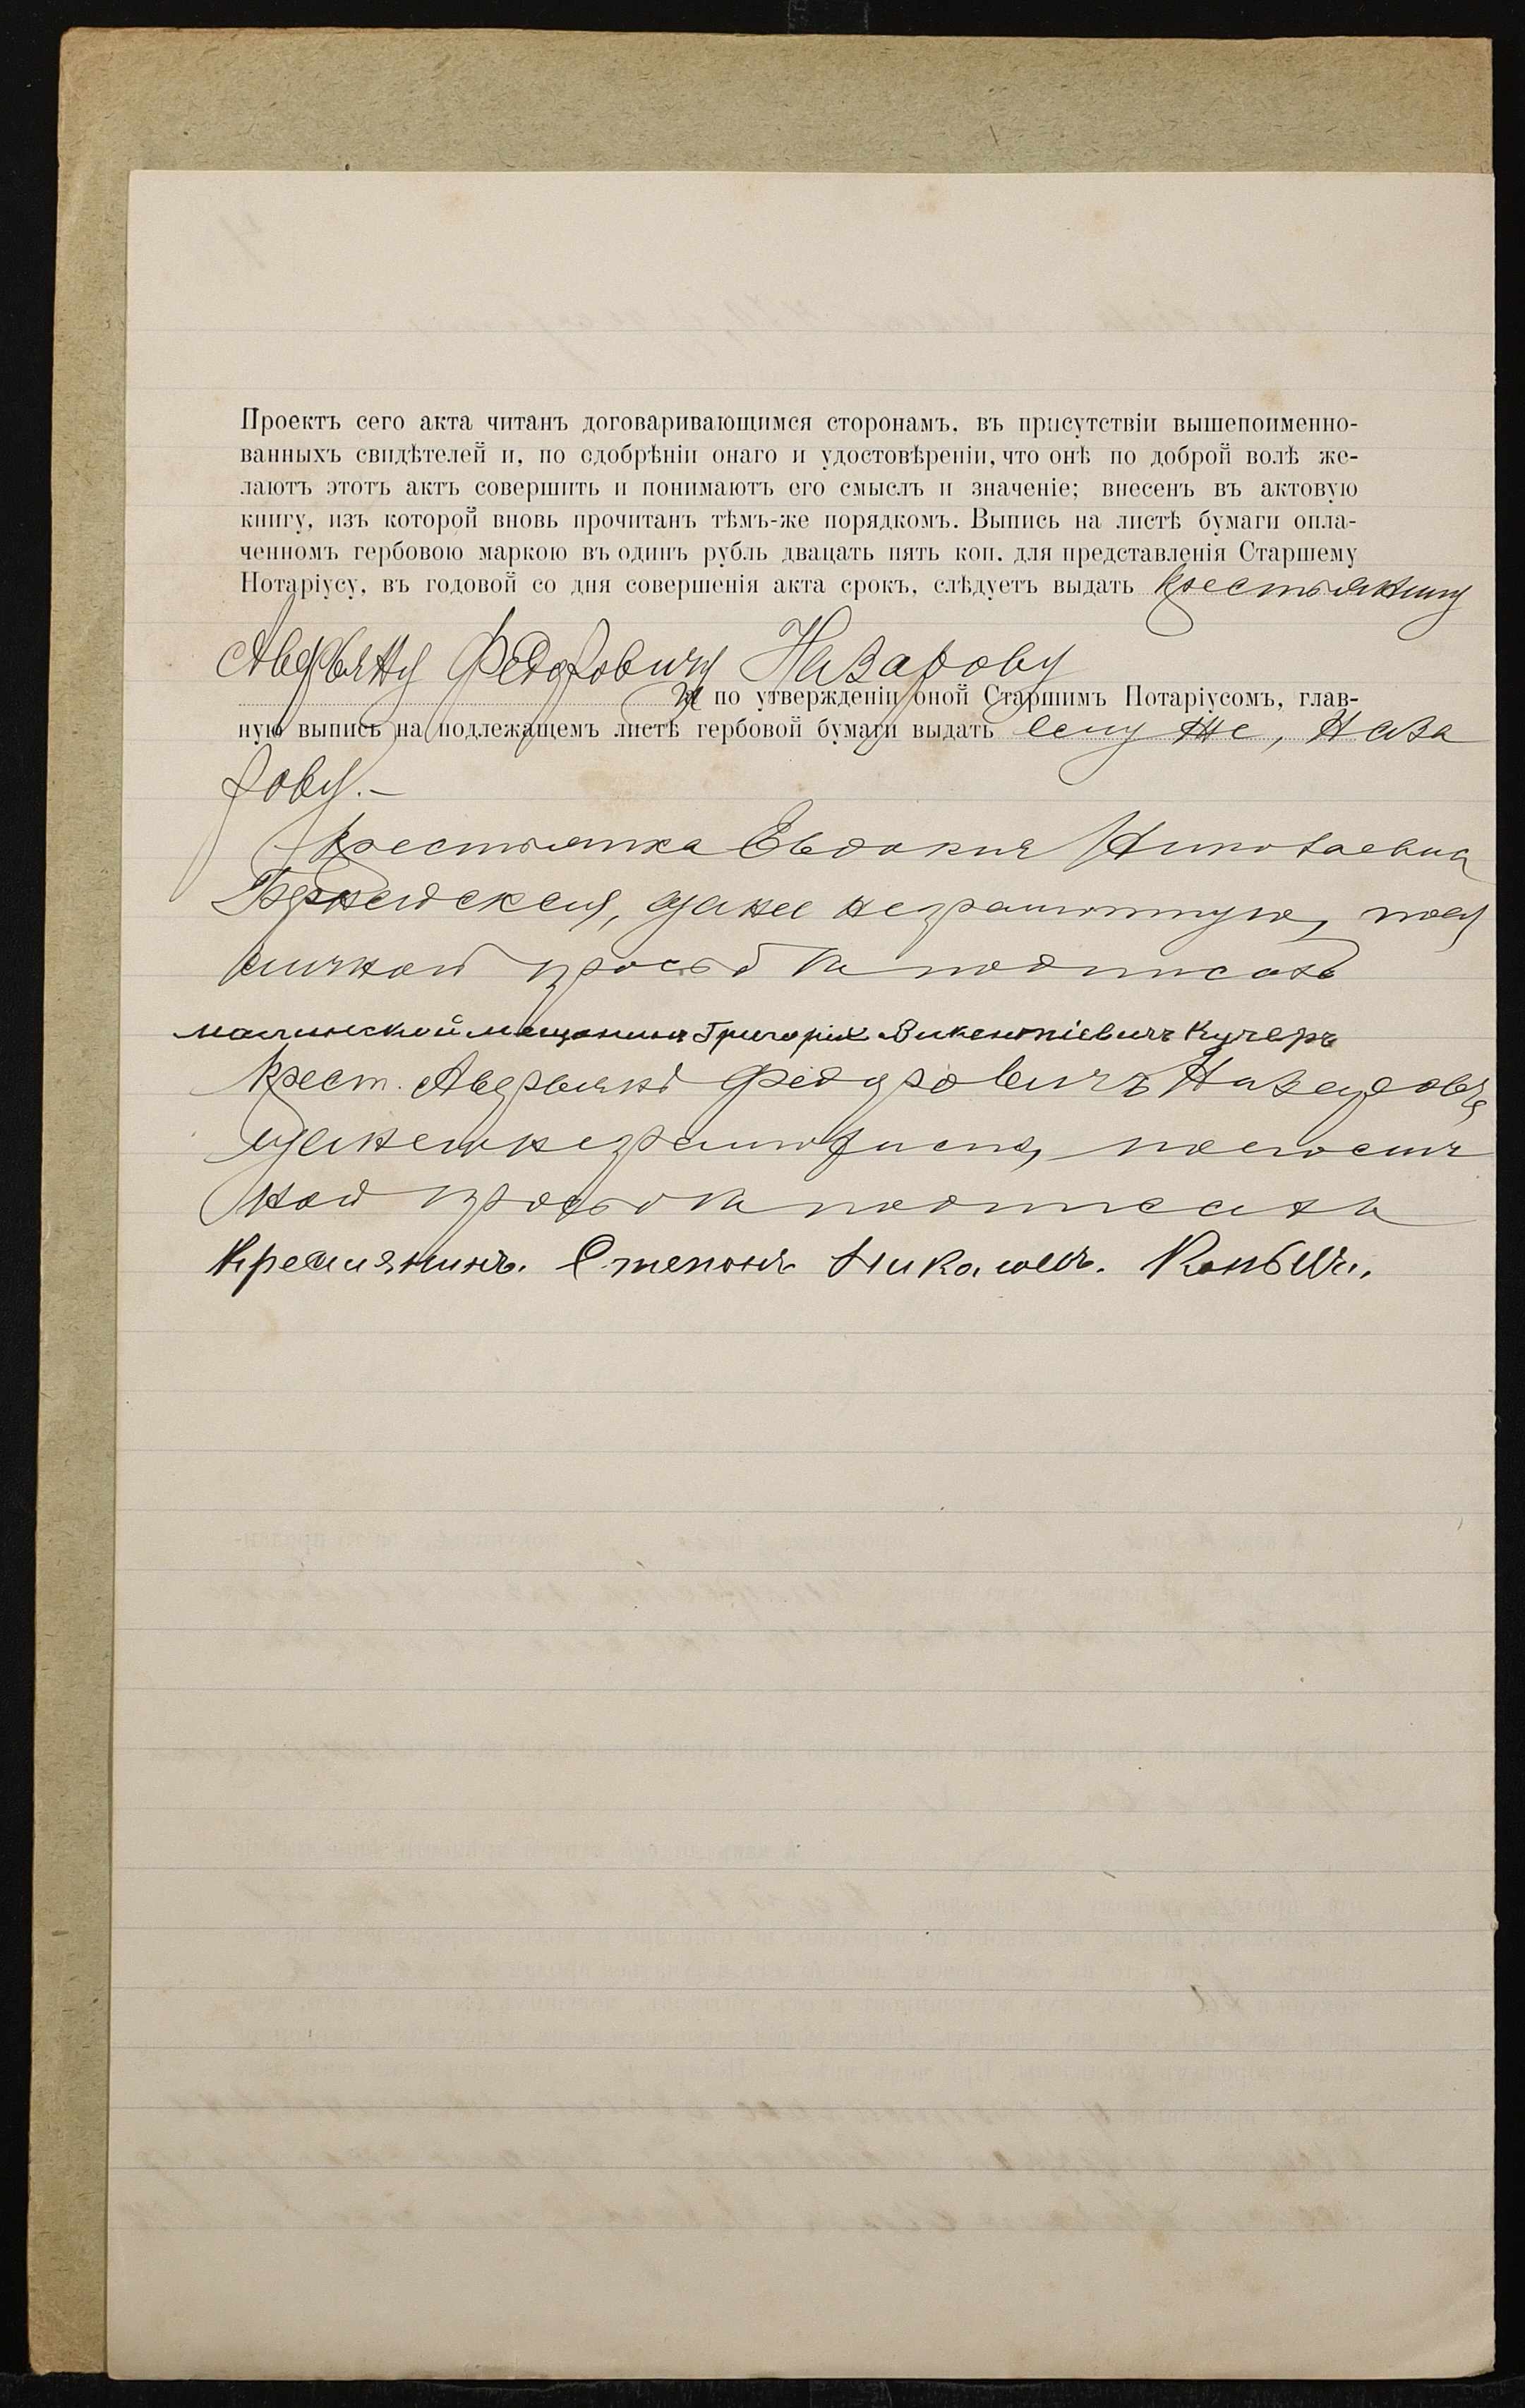 Проектъ сего акта читанъ договаривающимся сторонамъ, въ присутствіи вышепоименно-
ванныхъ свидѣтелей и, по одобрѣніи онаго и удостовѣреніи, что онѣ по доброй волѣ же-
лаютъ этотъ актъ совершить и понимаютъ его смыслъ и значеніе; внесенъ въ актовую
книгу, изъ которой вновь прочитанъ тѣмъ-же порядкомъ. Выпись на листѣ бумаги опла-
ченномъ гербовою маркою въ одинъ рубль двацать пять коп. для представленія Старшему
Нотаріусу, въ годовой со дня совершенія акта срокъ, слѣдуетъ выдать крестьянину
Аверьяну Федоровичу Назарову
И по утвержденіи оной Старшимъ Нотаріусомъ, глав-
ную выпись на подлежащемъ листѣ гербовой бумаги выдать ему же, Наза
рову.—
Крестьянка Евдокия Николаевна
а за нее неграмотную, по ея
личной просьбѣ подписалъ
мещанинъ Григорій Викентіевичъ Кучеръ
Крест. Аверьянъ Федоровичъ Назаровъ,
а за него неграмотнаго, по его лич
ной просьбѣ подписалъ
Крестьянинъ. Степанъ